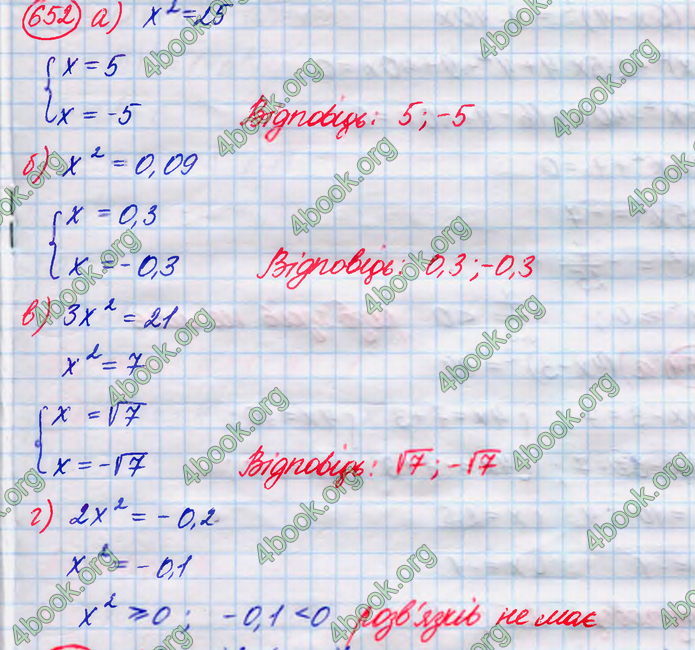 652 а) x² = 25
{ x = 5
x = -5 Відповідь: 5; -5
б) x² = 0,09
{ x = 0,3
x = -0,3 Відповідь: 0,3; -0,3
в) 3x² = 21
x² = 7
{ x = √7
x = -√7 Відповідь: √7; -√7
г) 2x² = -0,2
x² = -0,1
x² ≥ 0; -0,1 < 0 розв'язків не має
4book.org